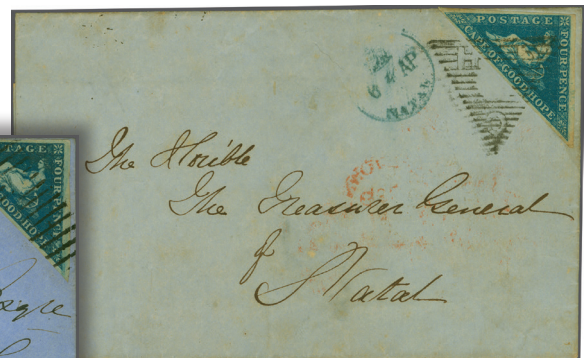 POSTAGE
FOUR PENCE
CAPE OF GOOD HOPE
AP
NATAL
The Honble
The Treasurer General
of
Natal
TAGE
FOUR PENCE
GOOD HOPE